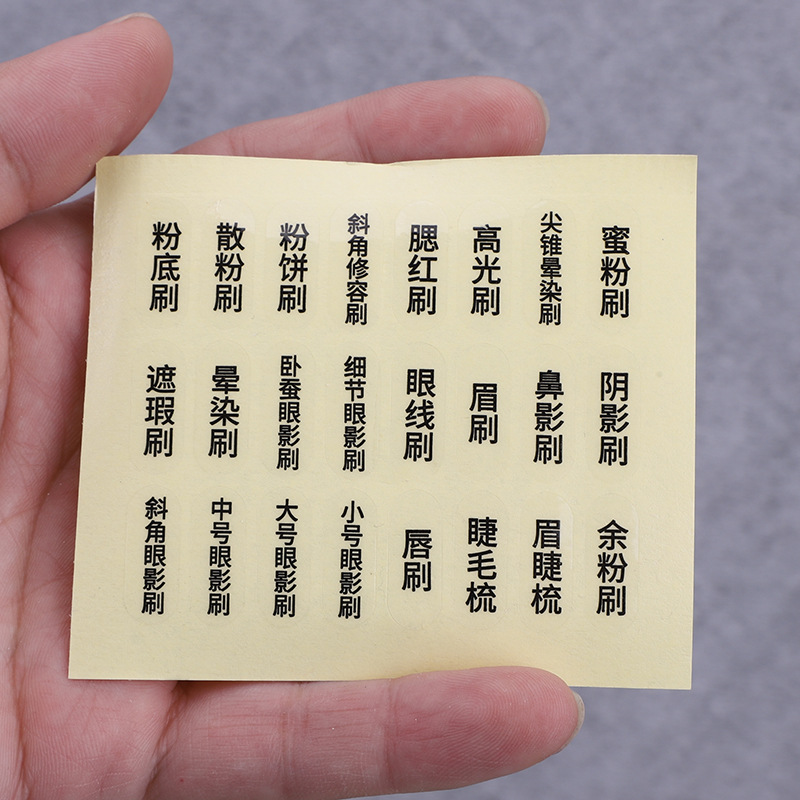 粉底刷
散粉刷
粉饼刷
斜角修容刷
腮红刷
高光刷
尖锥晕染刷
蜜粉刷
遮瑕刷
晕染刷
卧蚕眼影刷
细节眼影刷
眼线刷
眉刷
鼻影刷
阴影刷
斜角眼影刷
中号眼影刷
大号眼影刷
小号眼影刷
唇刷
睫毛梳
眉睫梳
余粉刷